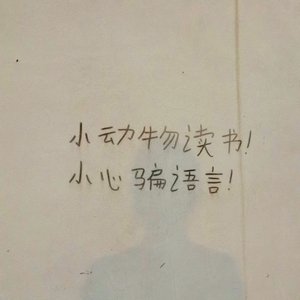 小动物读书!
小心骗语言!